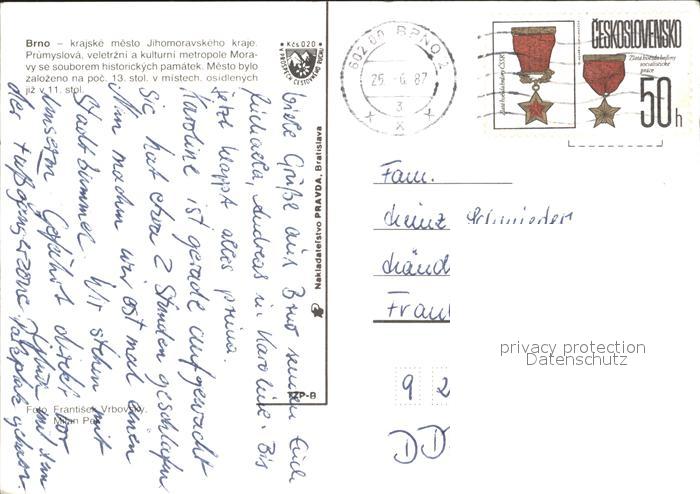 Brno – krajské město Jihomoravského kraje.
Průmyslová, veletržní a kulturní metropole Mora-
vy se souborem historických památek. Město bylo
založeno na poč. 13. stol. v místech, osídlených
již v 11. stol.
Kčs 0,20
Foto František Vrbovský,
Milan
Nakladatelstvo PRAVDA, Bratislava
Viele Grüße aus Brno senden Euch
Michaela, Andreas u. Karoline. Bis
jetzt klappt alles prima.
Karoline ist gerade aufgewacht
Sie hat etwa 2 Stunden geschlafen
Nun machen wir erst mal einen
Stadtbummel. Wir stehen mit
unserem Gefährt direkt vor
der Fußgängerzone
602 00 BRNO 2
25.-6.87
3
ČESKOSLOVENSKO
Zlatá hvězda hrdiny ČSSR
Zlatá hvězda hrdiny
socialistické
práce
50 h
Fam.
Heinz Schmieder
Fran
9 2
DD
privacy protection
Datenschutz